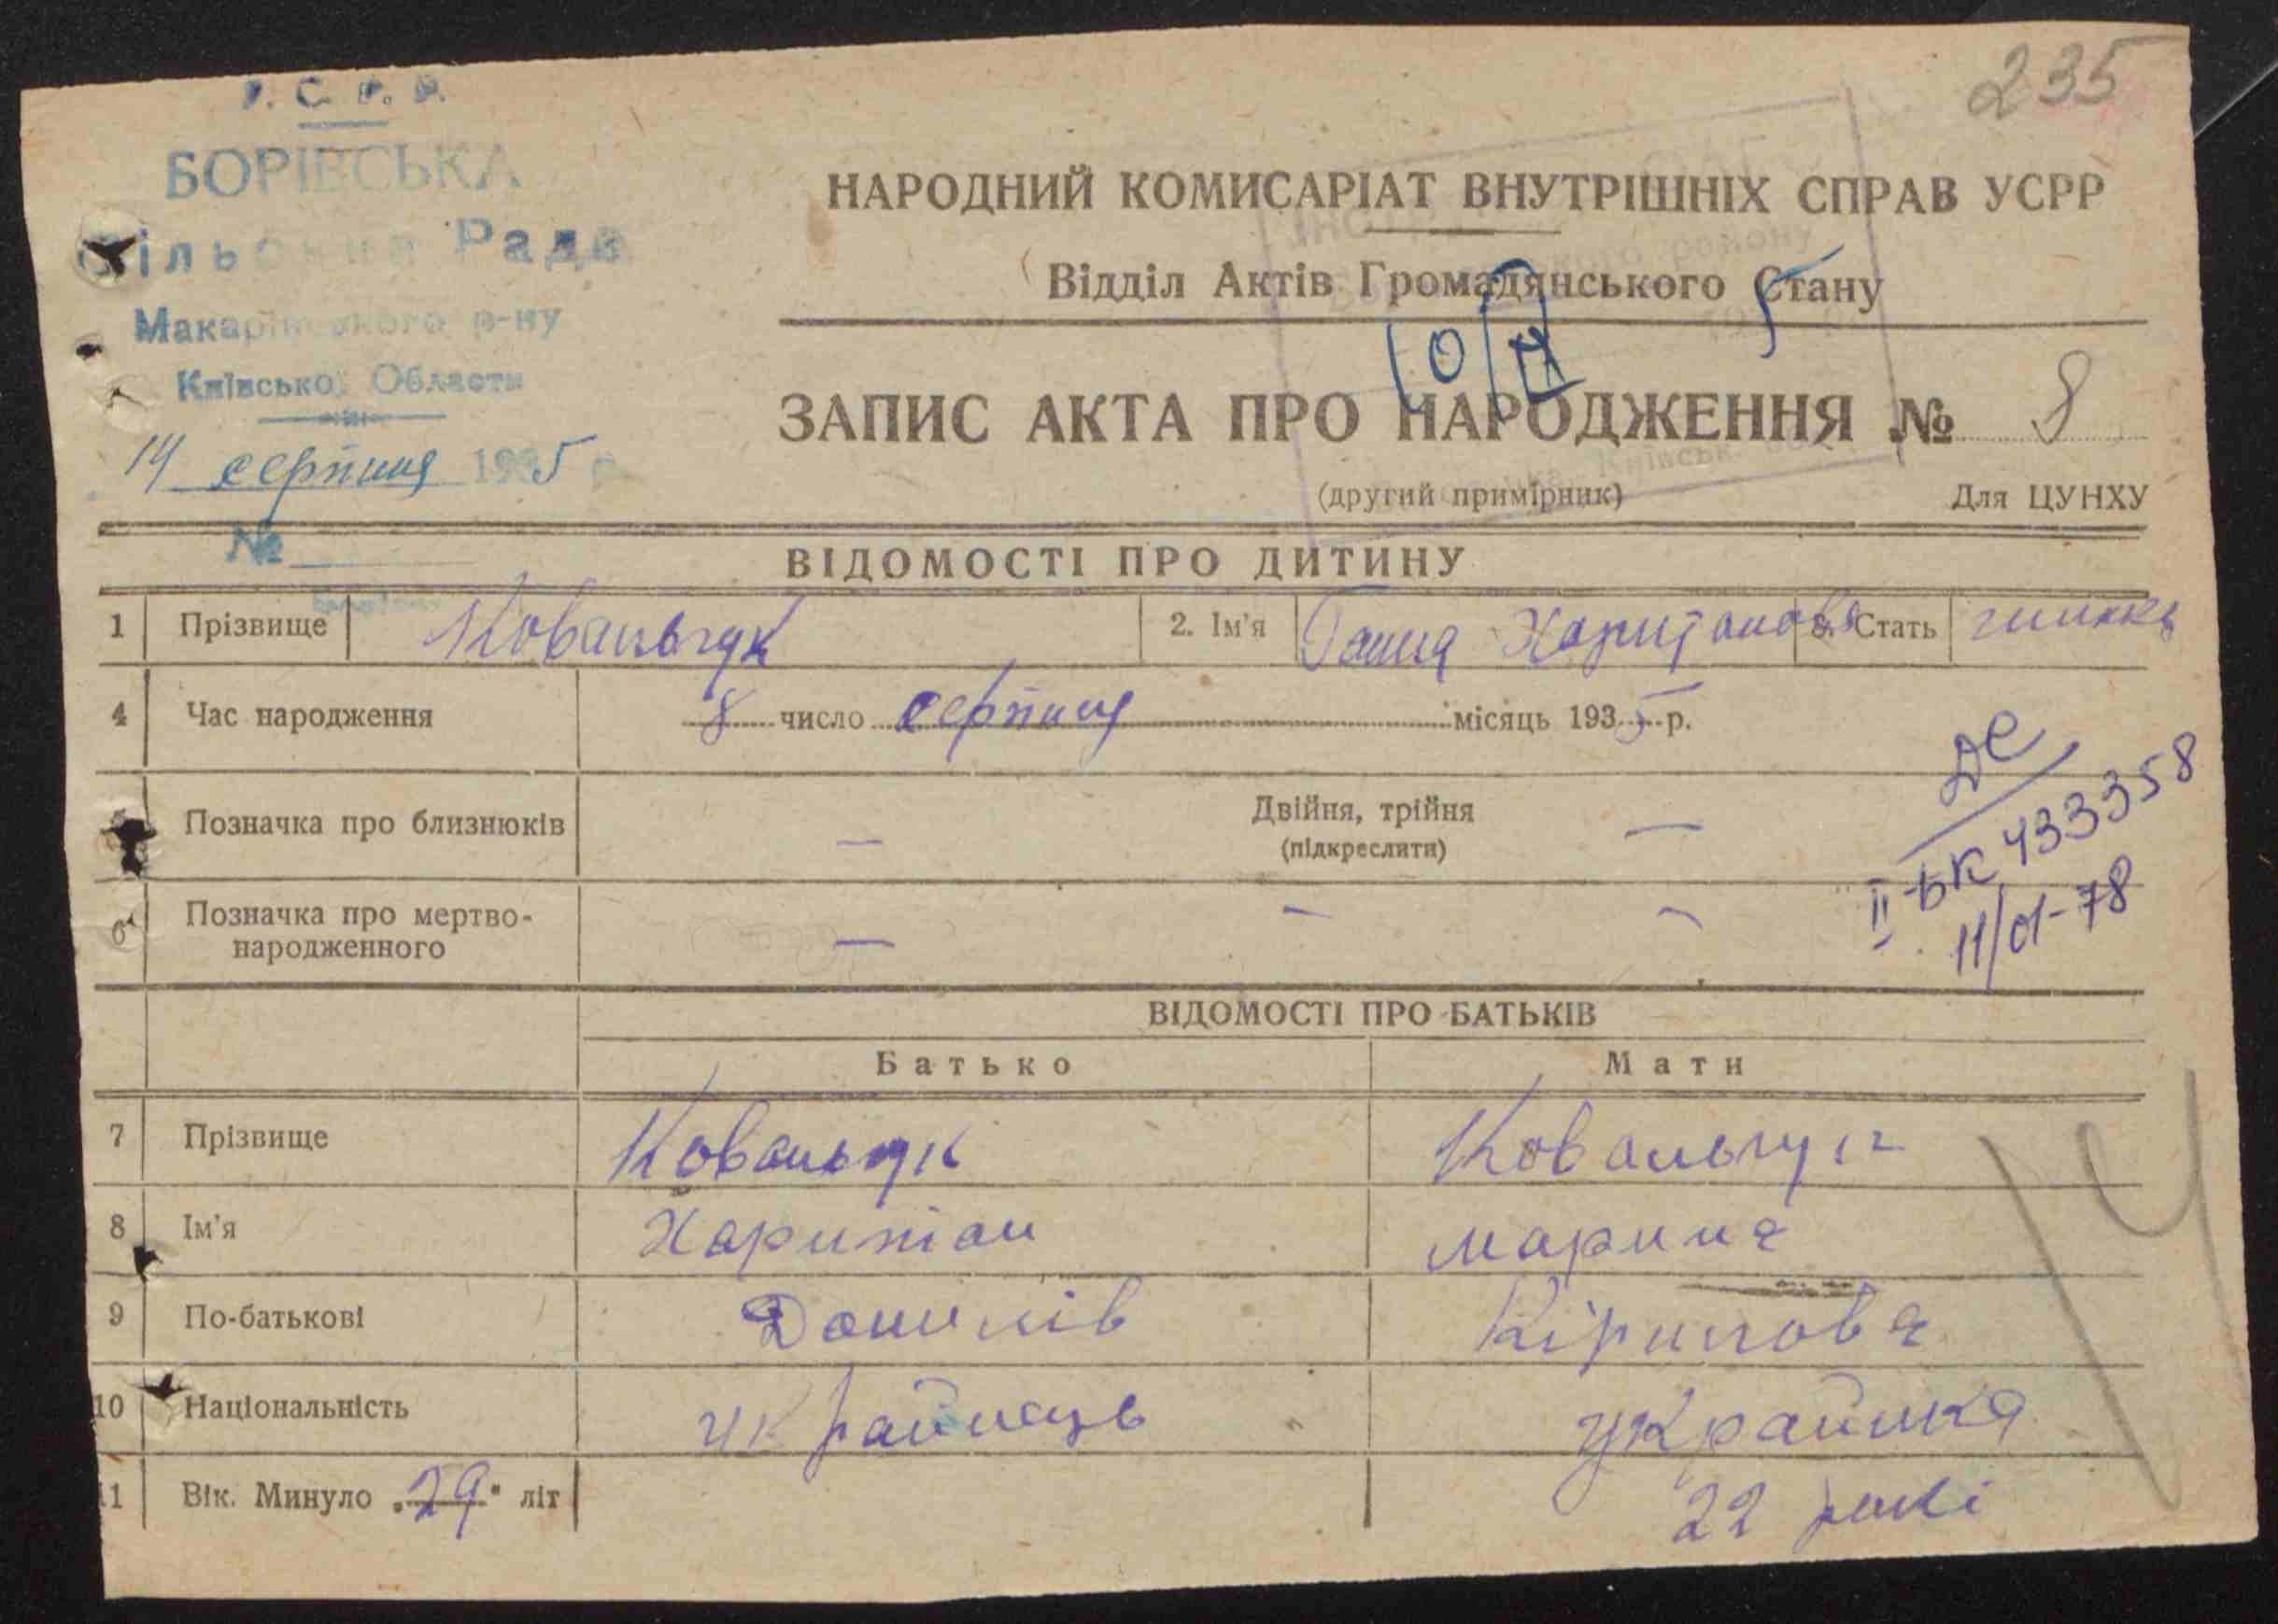 У.С.Р.Р.
235
БОРІВСЬКА
Сільська Рада
Макарівського р-ну
Київської Области
14 серпня 1935 р
№
НАРОДНИЙ КОМИСАРІАТ ВНУТРІШНІХ СПРАВ УСРР
Відділ Актів Громадянського Стану
ЗАПИС АКТА ПРО НАРОДЖЕННЯ № 8
(другий примірник) Для ЦУНХУ
ВІДОМОСТІ ПРО ДИТИНУ
1 Прізвище Ковальчук 2. Ім'я Ганна Харитонова 3. Стать жіноча
4 Час народження 8 число серпня місяць 1935 р.
5 Позначка про близнюків — Двійня, трійня —
(підкреслити)
6 Позначка про мертво-
народженного — — —
II-БК 433358
11/01-78
ВІДОМОСТІ ПРО БАТЬКІВ
Батько Мати
7 Прізвище Ковальчук Ковальчук
8 Ім'я Харитон марина
9 По-батькові Данилів Кірилова
10 Національність українець українка
11 Вік. Минуло „29" літ 22 роки